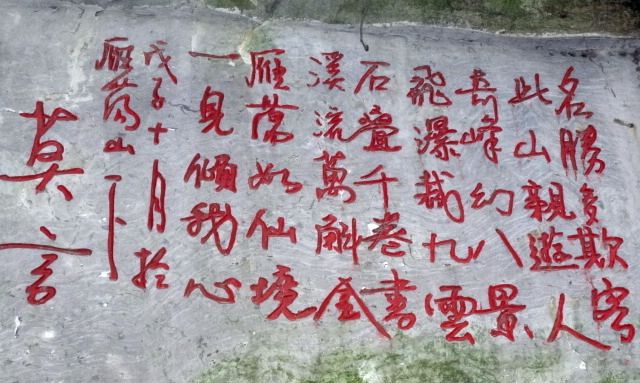 名勝多欺客
此山親遊人
奇峰幻八景
飛瀑裁九雲
石疊千卷書
溪流萬斛金
雁蕩如仙境
一見傾我心
戊子十月於
雁蕩山下
莫言